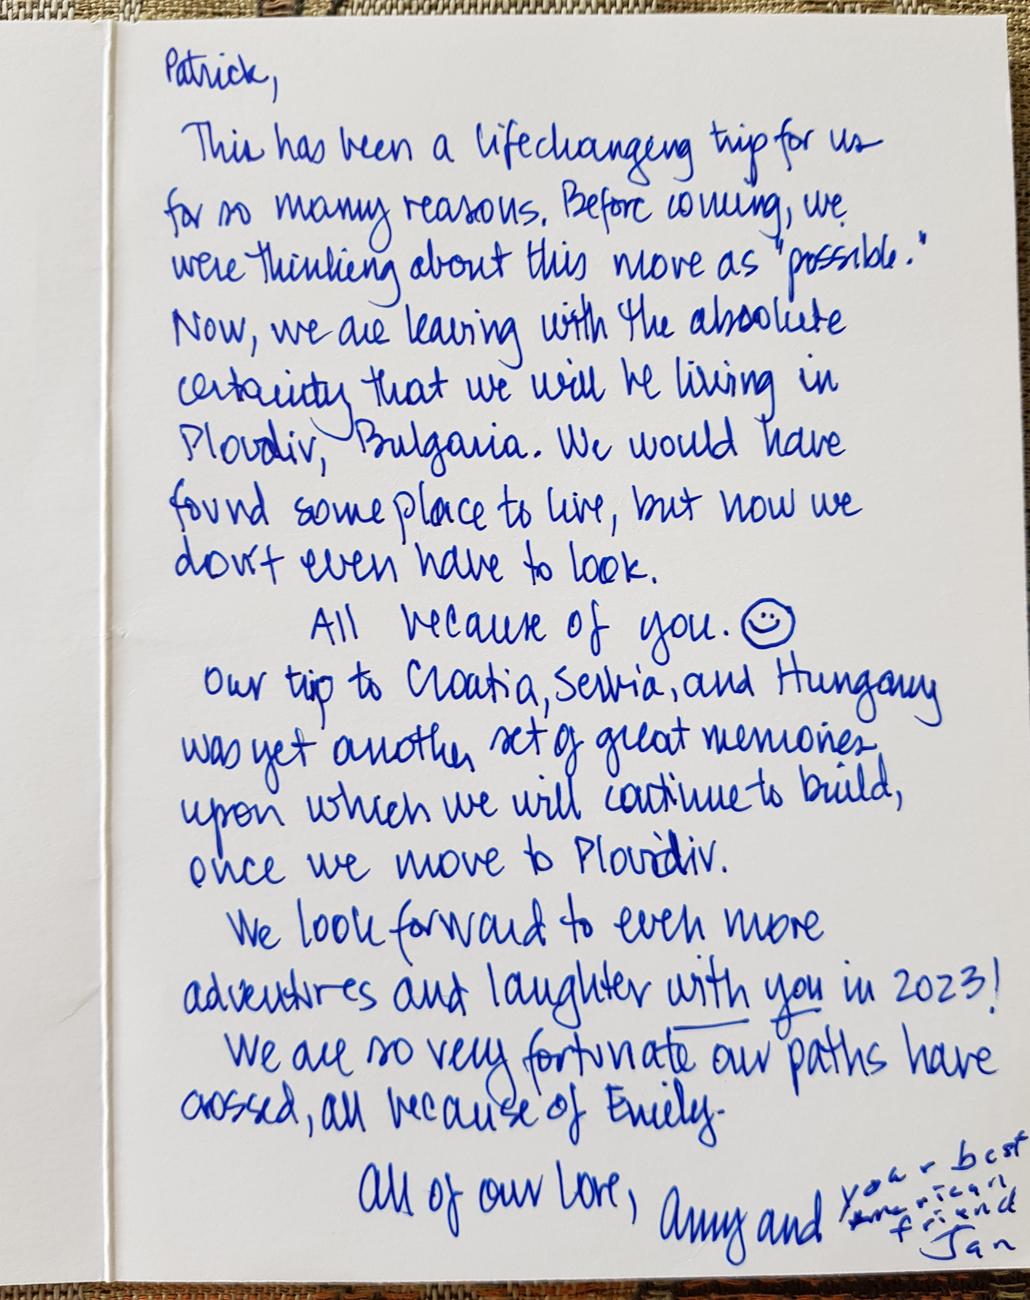 Patrick,
This has been a lifechanging trip for us
for so many reasons. Before coming, we
were thinking about this move as "possible."
Now, we are leaving with the absolute
certainty that we will be living in
Plovdiv, Bulgaria. We would have
found some place to live, but now we
don't even have to look.
All because of you. ☺
Our trip to Croatia, Serbia, and Hungary
was yet another set of great memories
upon which we will continue to build,
once we move to Plovdiv.
We look forward to even more
adventures and laughter with you in 2023!
We are so very fortunate our paths have
crossed, all because of Emily.
All of our love, Amy and
your best
american
friend
Jan